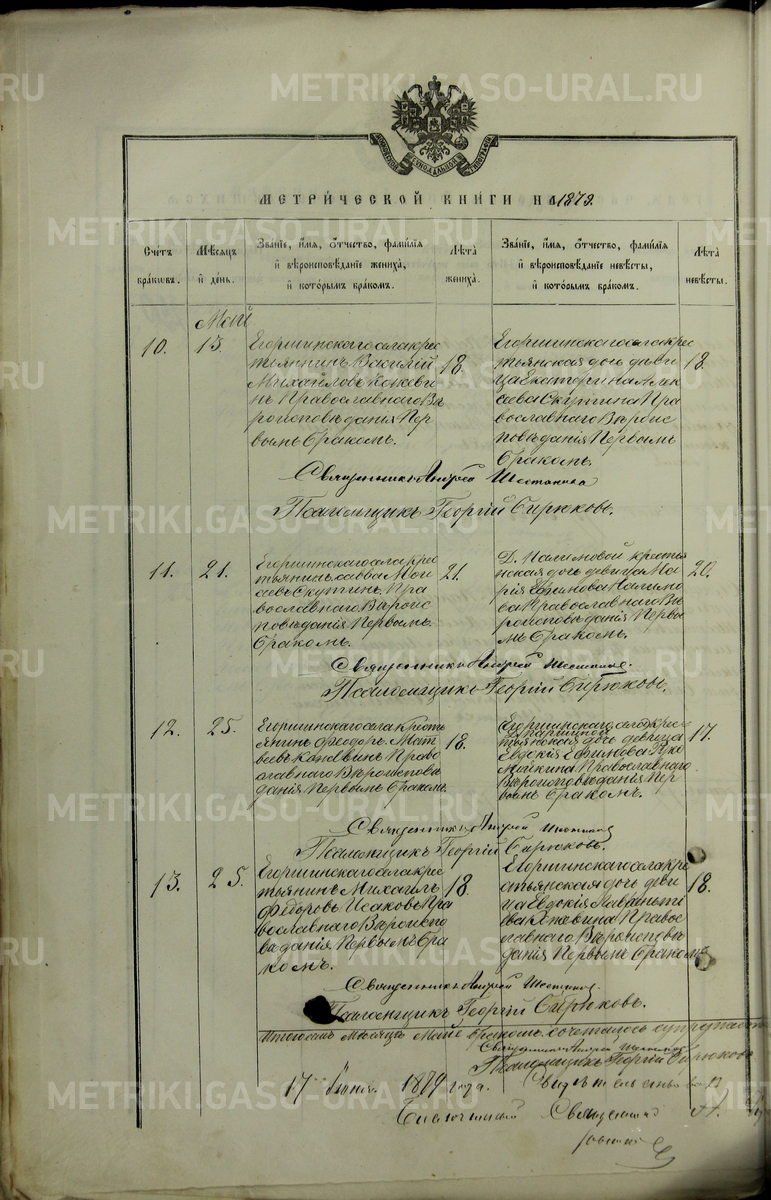 METRIKI.GASO-URAL.RU
СѴНОДАЛЬНОЙ
ТИПОГРАФІИ
МЕТРИЧЕСКОЙ КНИГИ НА 1879.
Счетъ браковъ.
Мѣсяцъ и день.
Званіе, имя, отчество, фамилія
и вѣроисповѣданіе жениха,
и которымъ бракомъ.
Лѣта жениха.
Званіе, имя, отчество, фамилія
и вѣроисповѣданіе невѣсты,
и которымъ бракомъ.
Лѣта невѣсты.
Май
10. 13.
Егоршинскаго села крес
тьянинъ Василій
Михайловъ Кожеви
нъ Православнаго Вѣ
роисповѣданія Пер
вымъ Бракомъ.
18.
Егоршинскаго села крес
тьянская дочь деви
ца Екатерина Алек
сеева Скутина Пра
вославнаго Вѣроис
повѣданія Первымъ
Бракомъ.
18.
Священникъ Андрей
Псаломщикъ Георгій Бирюковъ.
11. 21.
Егоршинскаго села крес
тьянинъ Савва Мои
сеевъ Скутинъ Пра
вославнаго Вѣроис
повѣданія Первымъ
Бракомъ.
21.
Д. Налимовой кресть
янская дочь девица Ма
рія Ефимова Налимо
ва Православнаго Вѣ
роисповѣданія Первы
мъ Бракомъ.
20.
Священникъ Андрей
Псаломщикъ Георгій Бирюковъ.
12. 25.
Егоршинскаго села кресть
янинъ Феодоръ Мат
веевъ Православнаго Вѣроисповѣ
данія Первымъ Бракомъ
18.
Егоршинскаго села крес
тьянская дочь девица
Евдокія Ефимова Руко
мойкина Православнаго
Вѣроисповѣданія Пер
вымъ Бракомъ.
17.
Священникъ Андрей
Псаломщикъ Георгій Бирюковъ.
13. 25.
Егоршинскаго села крес
тьянинъ Михаилъ
Федоровъ Исаковъ Пра
вославнаго Вѣроиспо
веданія Первымъ Бра
комъ.
18.
Егоршинскаго села кре
стьянская дочь деви
ца Евдокія Савватѣ
ева Правос
лавнаго Вѣроисповѣ
данія Первымъ Бракомъ
18.
Священникъ Андрей
Псаломщикъ Георгій Бирюковъ.
Итого въ Маѣ бракомъ сочеталось
Священникъ Андрей
Псаломщикъ Георгій Бирюковъ
17 Іюня 1879 года.
Благочинный Священникъ